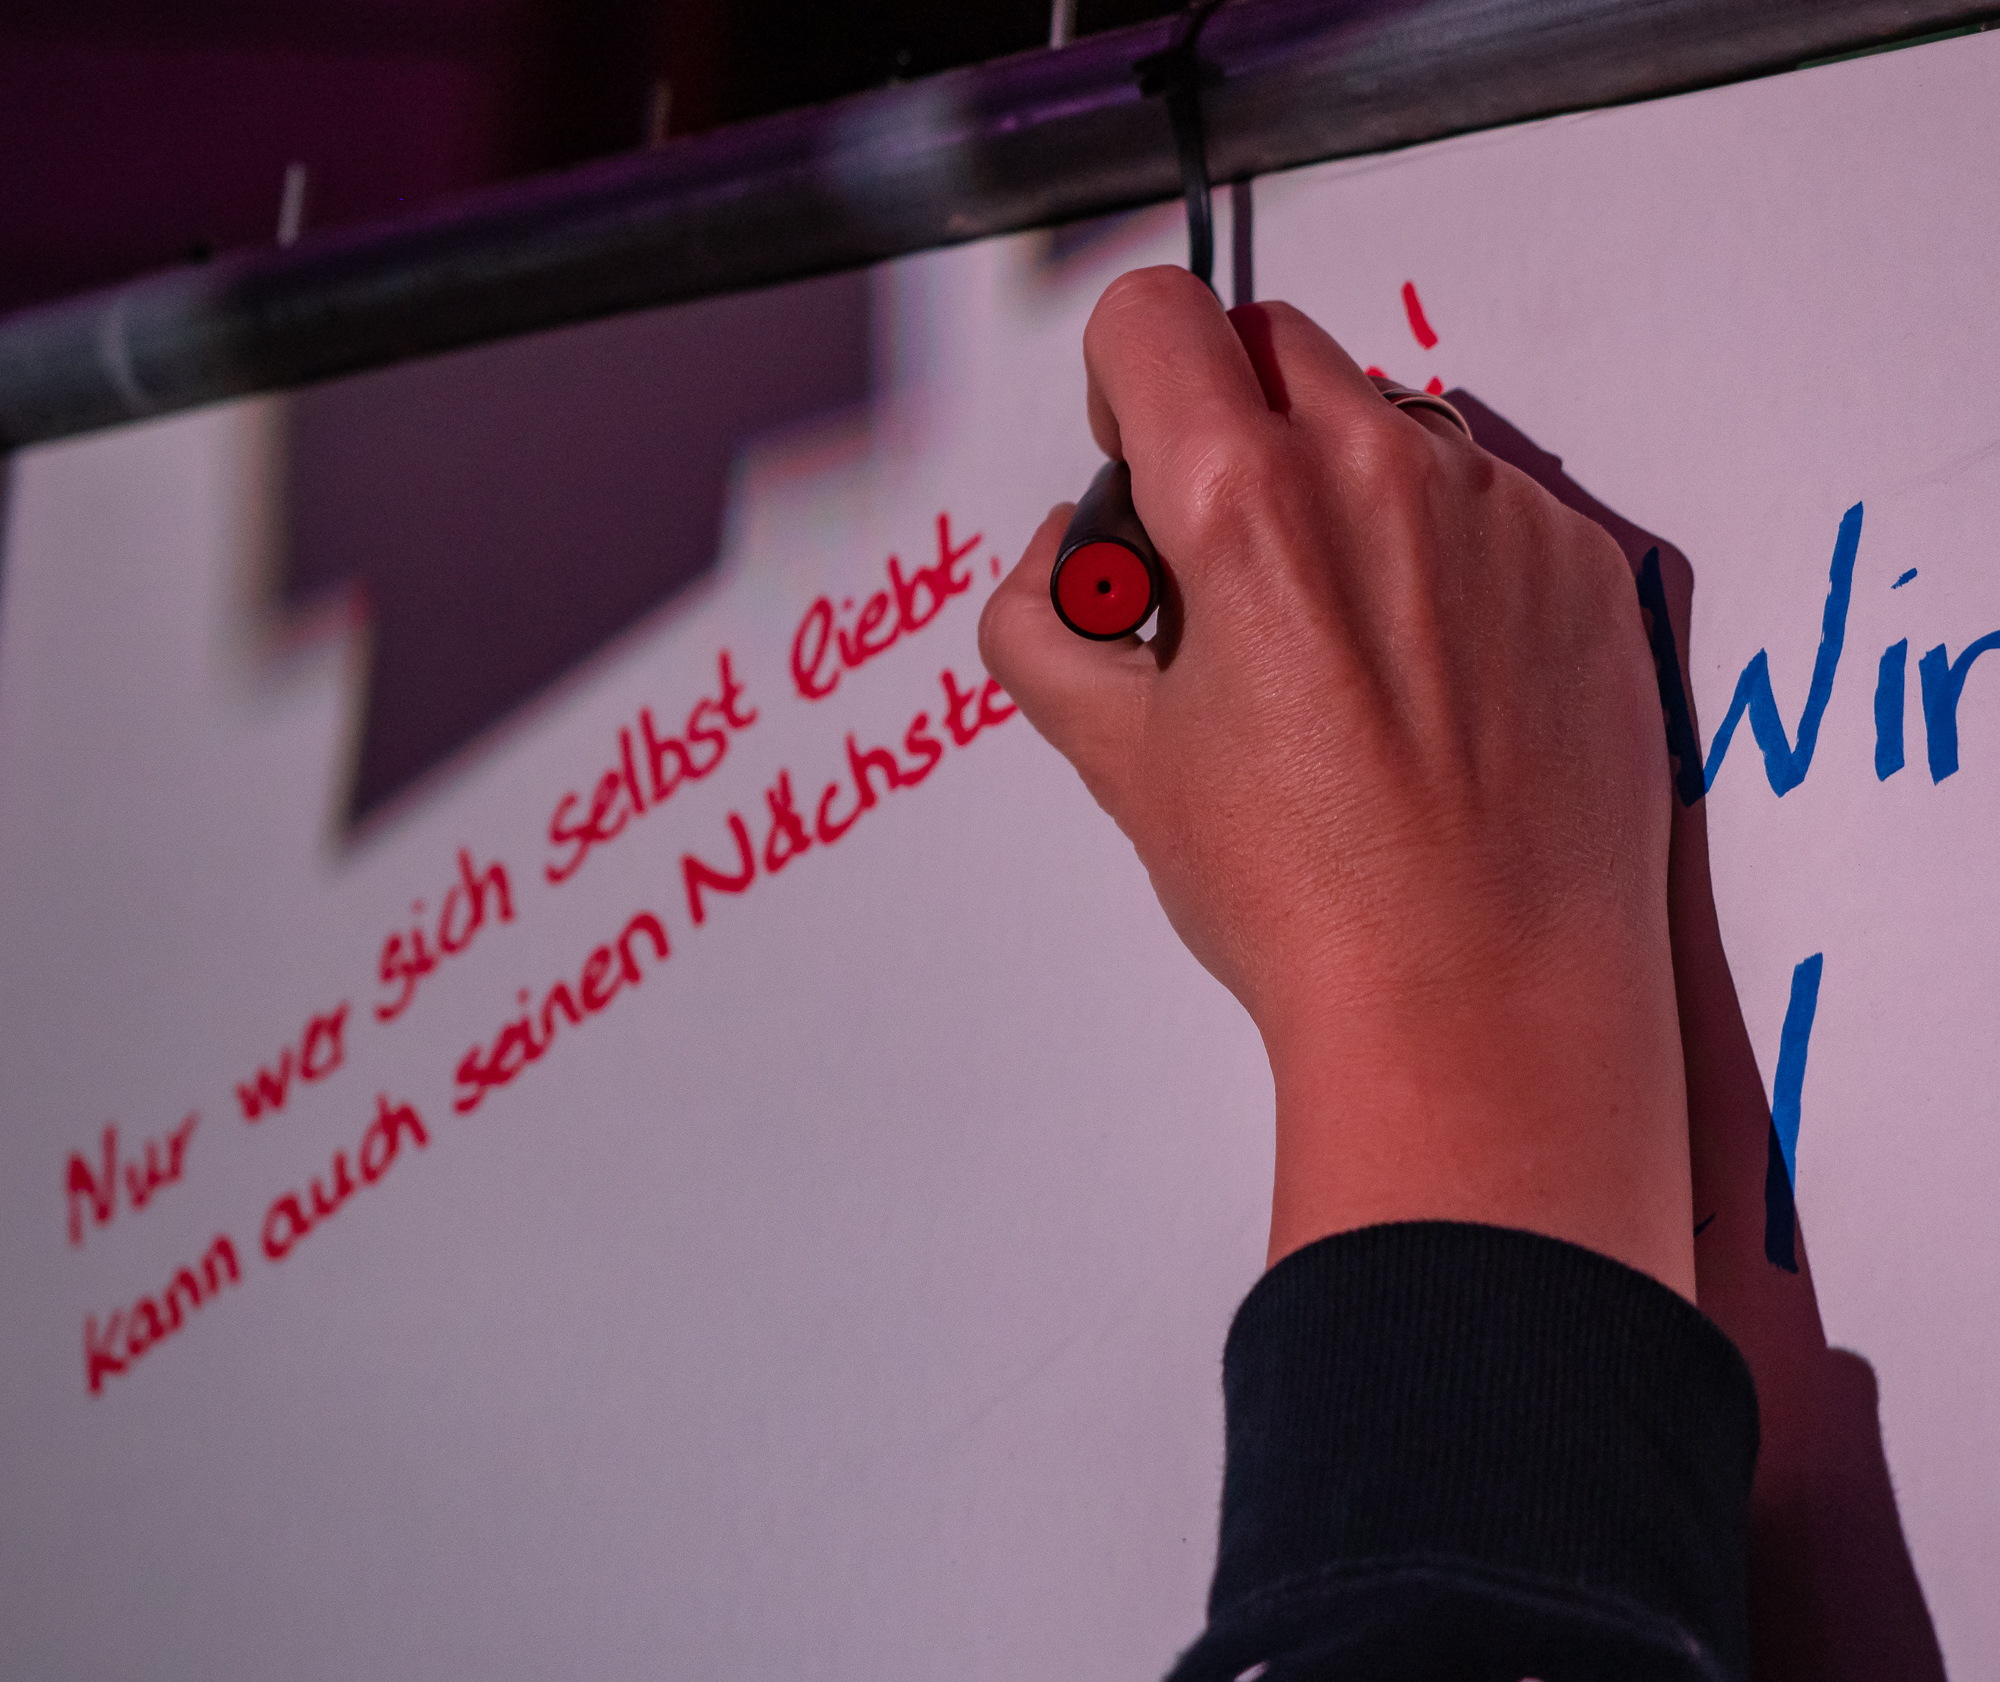 Nur wer sich selbst liebt,
kann auch seinen
Wir